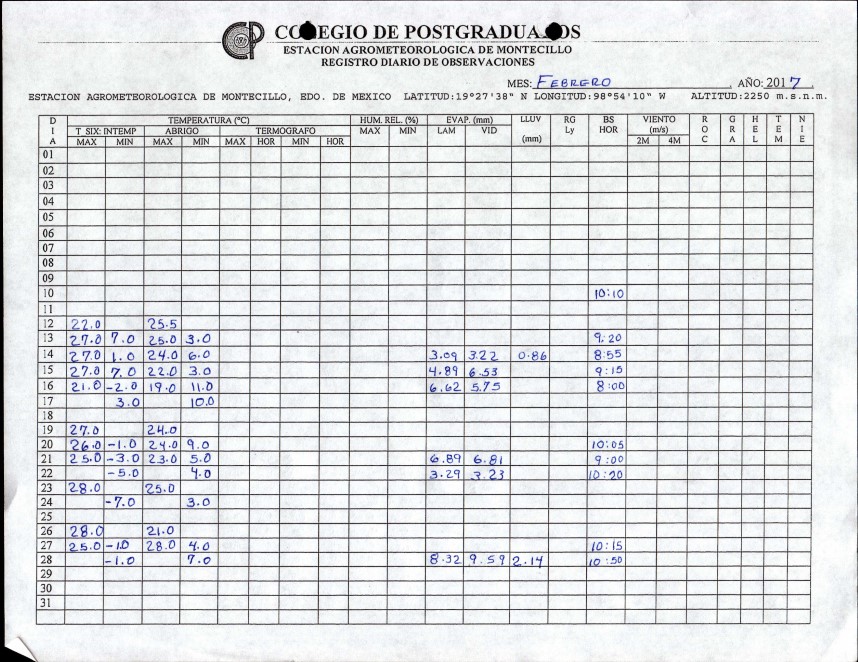 COLEGIO DE POSTGRADUADOS
ESTACION AGROMETEOROLOGICA DE MONTECILLO
REGISTRO DIARIO DE OBSERVACIONES
MES: FEBRERO AÑO: 2017
ESTACION AGROMETEOROLOGICA DE MONTECILLO, EDO. DE MEXICO LATITUD:19°27'38" N LONGITUD:98°54'10" W ALTITUD:2250 m.s.n.m.
DIA TEMPERATURA (°C) HUM. REL. (%) EVAP. (mm) LLUV (mm) RG Ly BS HOR VIENTO (m/s) ROC GRA HEL TEM NIE
T SIX: INTEMP ABRIGO TERMOGRAFO MAX MIN LAM VID
MAX MIN MAX MIN MAX HOR MIN HOR 2M 4M
01
02
03
04
05
06
07
08
09
10 10:10
11
12 22.0 25.5
13 27.0 7.0 25.0 3.0 9:20
14 27.0 1.0 24.0 6.0 3.09 3.22 0.86 8:55
15 27.0 7.0 22.0 3.0 4.89 6.53 9:15
16 21.0 -2.0 19.0 11.0 6.62 5.75 8:00
17 3.0 10.0
18
19 27.0 24.0
20 26.0 -1.0 24.0 9.0 10:05
21 25.0 -3.0 23.0 5.0 6.89 6.81 9:00
22 -5.0 4.0 3.29 3.23 10:20
23 28.0 25.0
24 -7.0 3.0
25
26 28.0 21.0
27 25.0 -1.0 28.0 4.0 10:15
28 -1.0 7.0 8.32 9.59 2.14 10:50
29
30
31